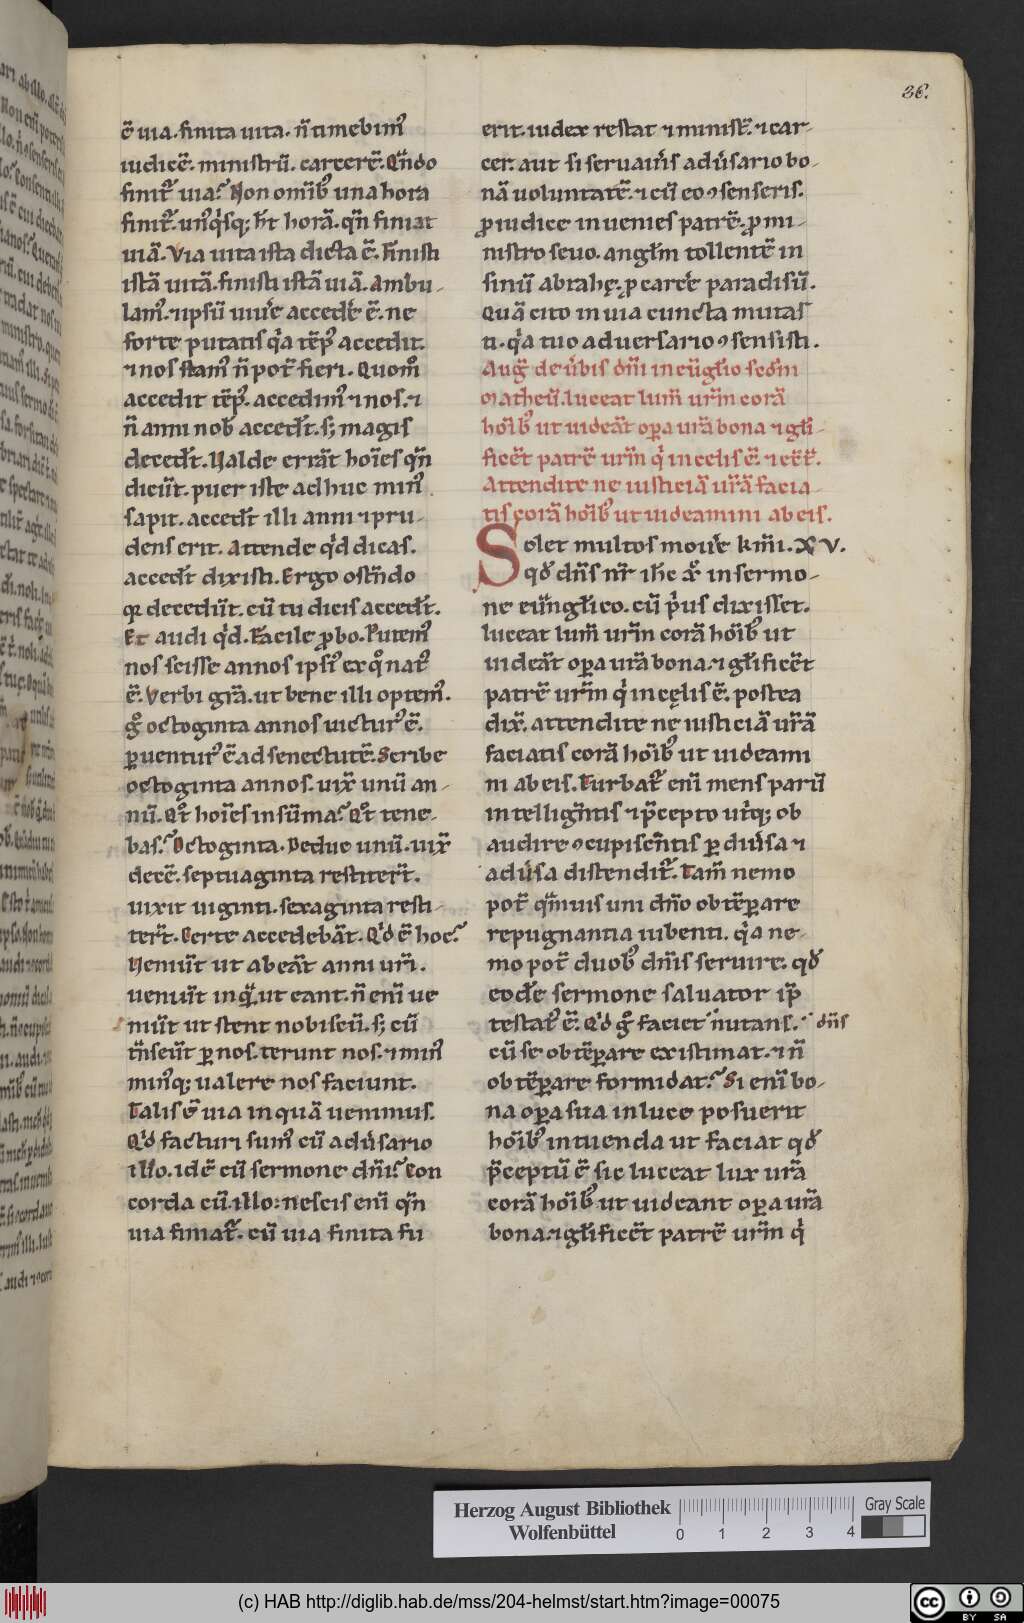 36.
ē uia. finita uita. ñ timebim᷒
iudicē. ministrū. carcerē. Qn̄do
finit᷑ uia? Non omib᷒ una hora
finit᷑. un᷒qͥsq; ht̄ horā. qn̄ finiat
uiā. Via uita ista dicta ē. Finisti
istā uitā. finisti istā uiā. Ambu-
lam᷒. ⁊ ipsū uiuͤe accedͤe ē. ne
forte putatis qͥa tēp᷒ accedit.
⁊ nos stam᷒ ñ pot᷑ fieri. Quom̊
accedit tēp᷒. accedim᷒ ⁊ nos. ⁊
ñ anni nob̄ accedt̄. s; magis
decedt̄. Valde errāt hoīes qn̄
dicūt. puer iste adhuc min᷒
sapit. accedt̄ illi anni ⁊ pru-
dens erit. Attende qͥd dicas.
accedt̄ dixisti. Ergo ostn̄do
qꝛ decedūt. cū tu dicis accedt̄.
Et audi qͥd. Facile ꝓbo. Putem᷒
nos scisse annos ipsi᷒ ex qͦ nat᷒
ē. Verbi grā. ut bene illi optem᷒.
gͦ octoginta annos uictur᷒ ē.
ꝑuentur᷒ ē ad senectutē. Scribe
octoginta annos. uix̄ unū an-
nū. Qͦt hoīes in sūma? Qͦt tene-
bas? Octoginta. Deduc unū. uix̄
decē. septuaginta restiter̄t.
uixit uiginti. sexaginta resti-
ter̄t. Certe accedebāt. Qͥd ē hoc?
Veniūt ut abeāt anni ur̄i.
ueniūt inqͣ ut eant. ñ eni ue
niūt ut stent nobiscū. s; cū
tn̄seūt ꝑ nos. terunt nos. ⁊ min᷒
min᷒q; ualere nos faciunt.
Talis ē uia in quā uenimus.
Qͥd facturi sum᷒ cū adu͛sario
illo. id ē cū sermone dn̄i? Con
corda cū illo: nescis eni qn̄
uia finiat᷑. cū uia finita fu
erit. iudex restat ⁊ minist᷑. ⁊ car-
cer. aut si seruauͥis adu͛sario bo-
nā uoluntatē. ⁊ cū eo ꝯsenseris.
ꝓ iudice inuenies patrē. ꝓ mi-
nistro seuo. anglm̄ tollentē in
sinū abrahę. ꝓ carcͤe paradisū.
Quā cito in uia cuncta mutas
ti. qͥa tuo aduersario ꝯsensisti.
Auḡ de u͛bis dn̄i in eūgl̄io scd̄m
matheū. luceat lum̄ ur̄m corā
hoīb᷒ ut uideāt oꝑa ur̄a bona ⁊ gl̄i-
ficēt patrē ur̄m qͥ in celis ē. ⁊ cēt̄.
Attendite ne iusticiā ur̄ā facia-
tis corā hoīb᷒ ut uideamini ab eis.
Solet multos mouͤe km̄i. XV.
qd̄ dn̄s nr̄ ih̄c xͦ in sermo-
ne eūngl̄ico. cū pͥus dixisset.
luceat lum̄ ur̄m corā hoīb᷒ ut
uideāt oꝑa ur̄a bona. ⁊ gl̄ificēt
patrē ur̄m qͥ in cęlis ē. postea
dix̄. attendite ne iusticiā ur̄ā
faciatis corā hoīb᷒ ut uideami
ni ab eis. Turbat᷑ eni mens parū
intellign̄tis ⁊ p̄cepto utͥq; ob
audire ꝯcupiscn̄tis ꝑ diu͛sa ⁊
adu͛sa distendit᷑. Tam̄ nemo
pot᷑ qm̄uis uni dn̄o obtēꝑare
repugnantia iubenti. qͥa ne-
mo pot᷑ duob᷒ dn̄is seruire. qd̄
eodē sermone saluator ip̄
testat᷒ ē. Qͥd gͦ faciet nutans. dn̄s
cū se obtēꝑare existimat. ⁊ ñ
obtēꝑare formidat? Si eni bo-
na oꝑa sua in luce posuerit
hoīb᷒ intuenda ut faciat qd̄
p̄ceptū ē sic luceat lux ur̄a
corā hoīb᷒ ut uideant oꝑa ur̄a
bona. ⁊ gl̄ificēt patrē ur̄m qͥ
Herzog August Bibliothek
Wolfenbüttel
0 1 2 3 4
Gray Scale
(c) HAB http://diglib.hab.de/mss/204-helmst/start.htm?image=00075
cc BY SA